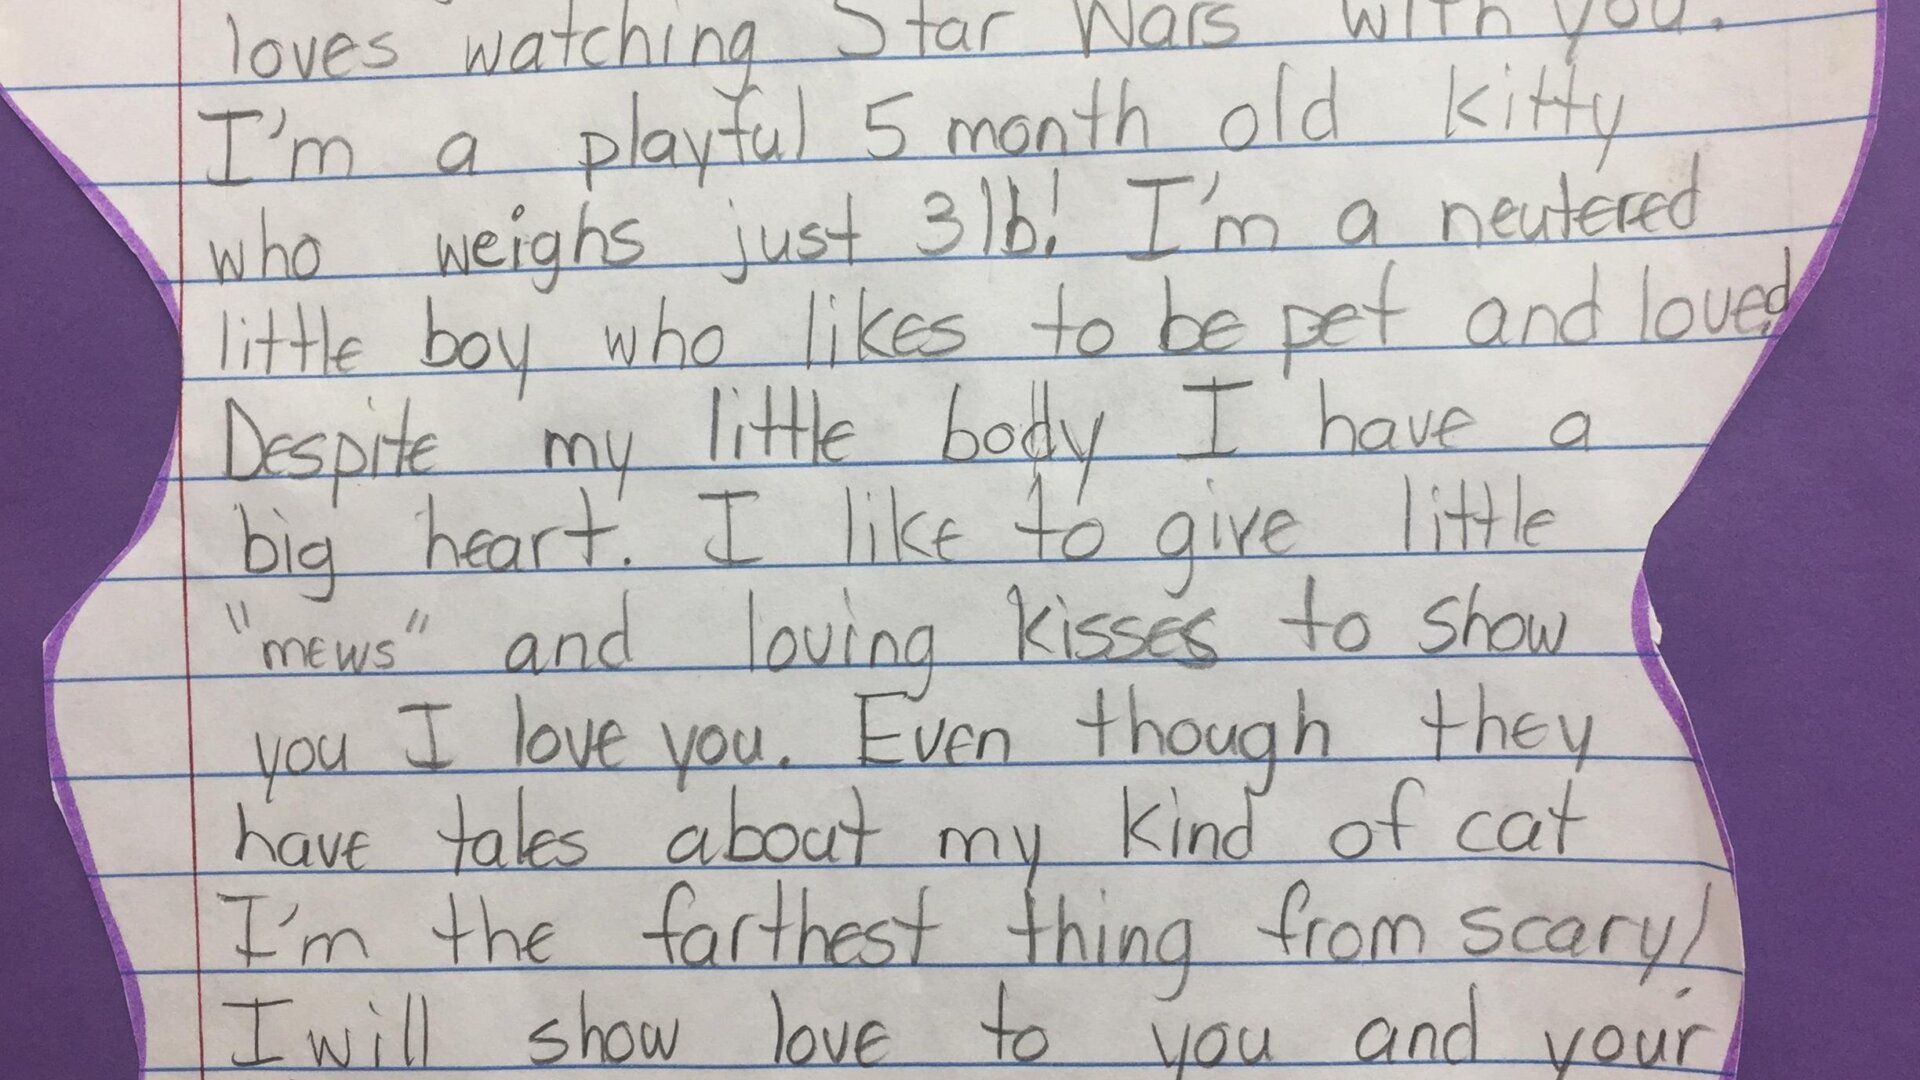 loves watching Star Wars with you.
I'm a playful 5 month old kitty
who weighs just 3lb! I'm a neutered
little boy who likes to be pet and loved.
Despite my little body I have a
big heart. I like to give little
"mews" and loving kisses to show
you I love you. Even though they
have tales about my kind of cat
I'm the farthest thing from scary!
I will show love to you and your